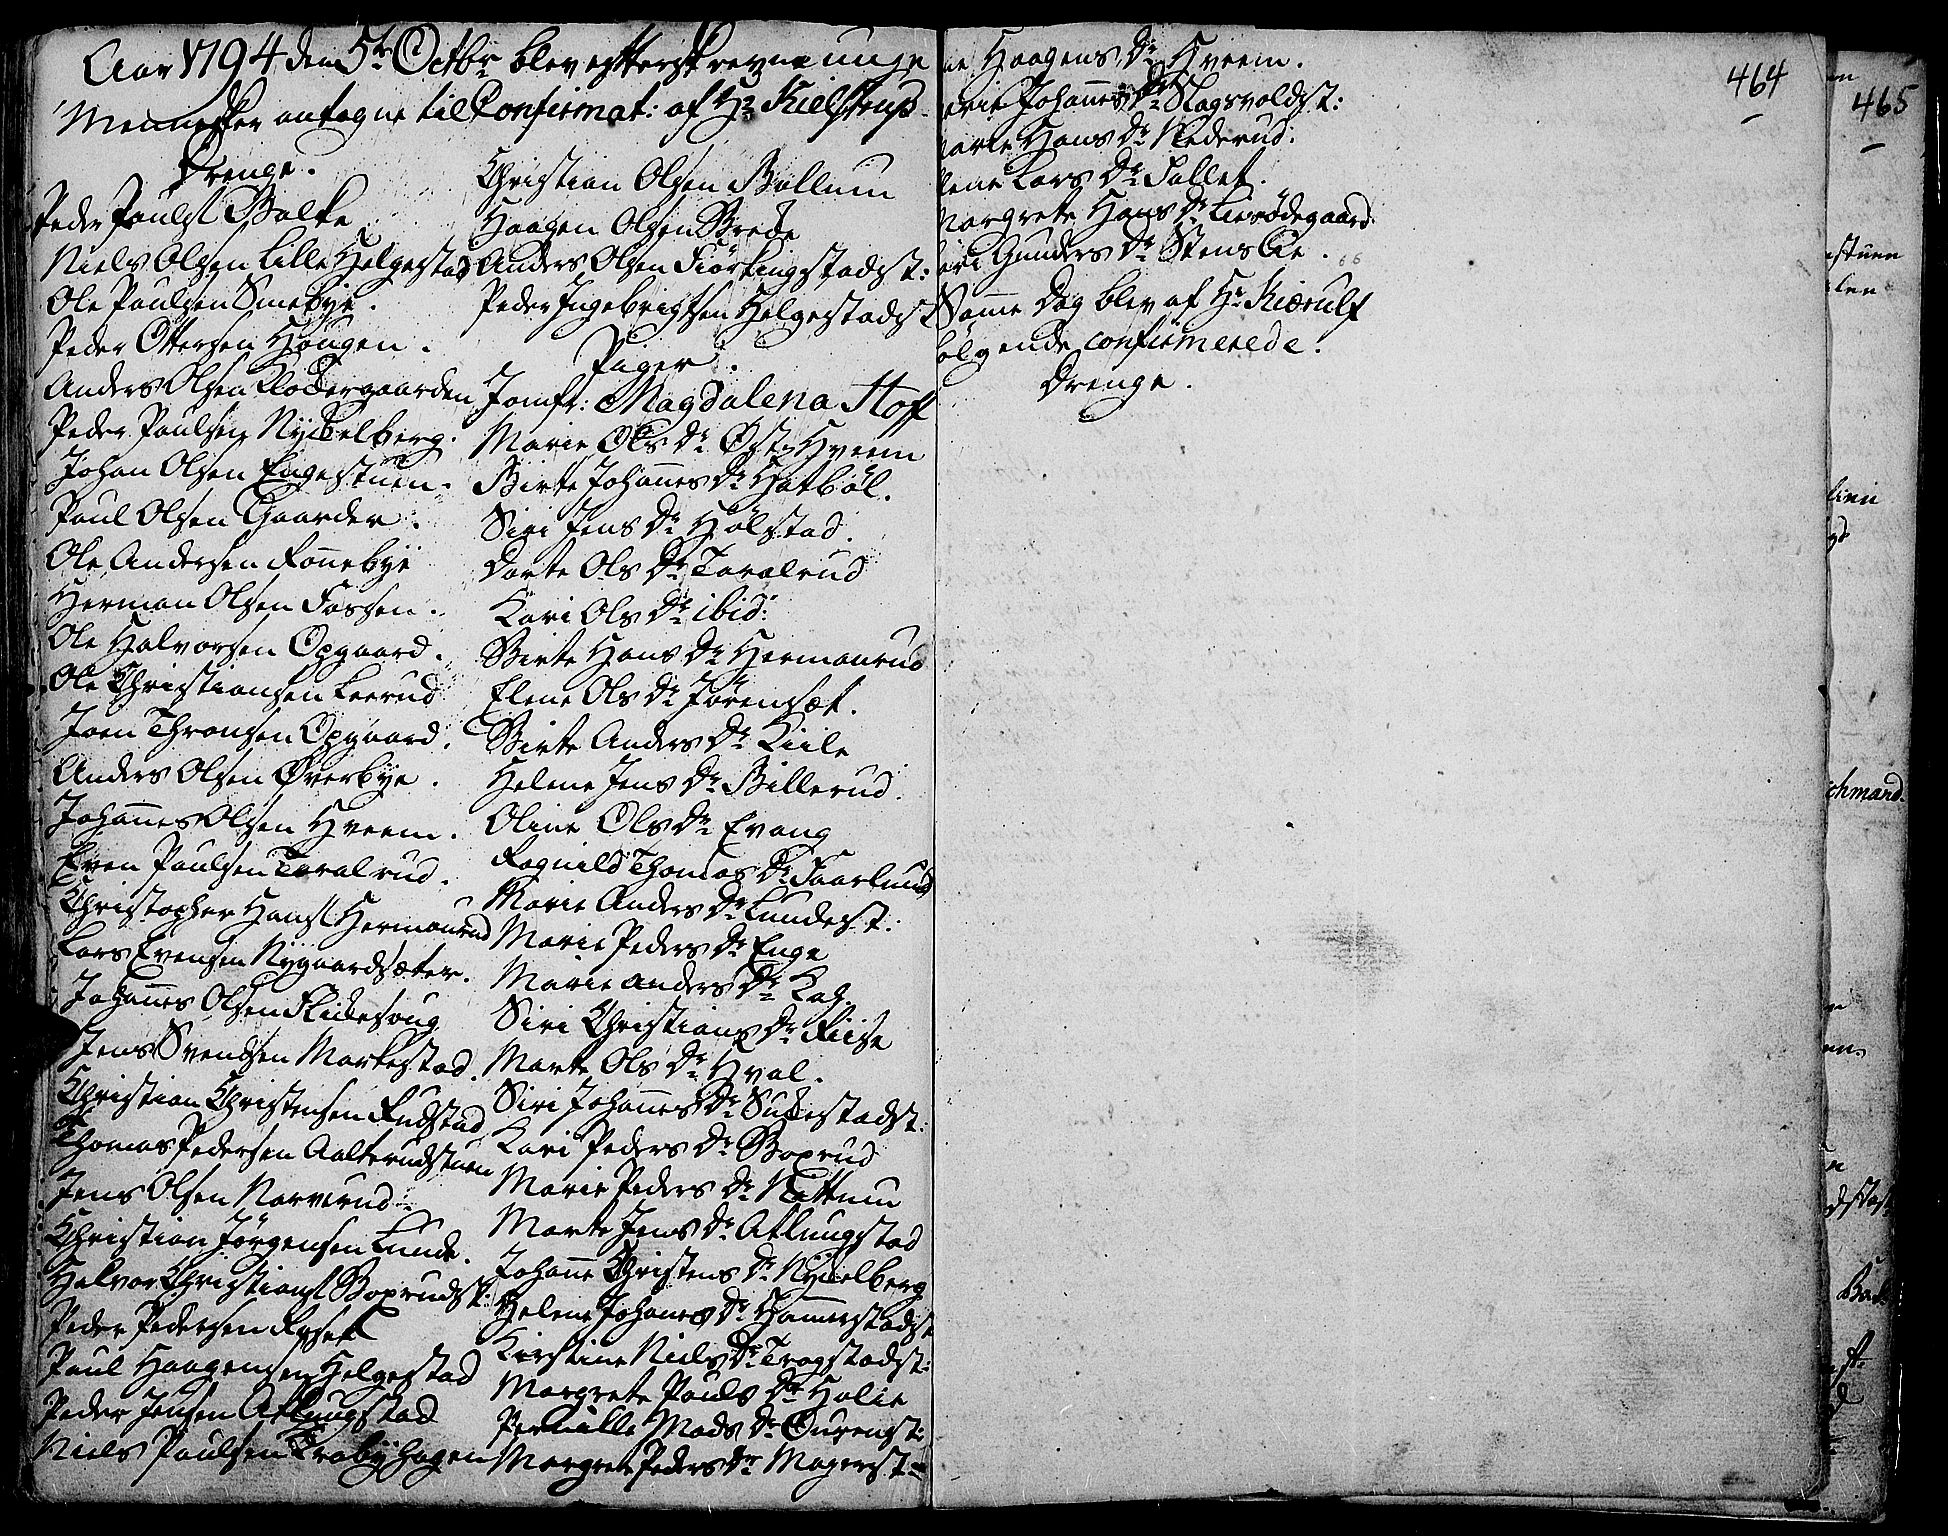 Aar 1794 den 5te Octbr blev efterskrevne unge
Mennesker antagne til Confirmat: af Hr Kielstrup
Drenge.
Peder Pauls: Balke
Niels Olsen Lille Helgestad
Ole Paulsen Smebye.
Peder Ottersen Haugen.
Anders Olsen Klodergaarden
Peder Paulsen Nykelberg.
Johan Olsen Engestuen.
Paul Olsen Gaarder.
Ole Andersen Rønnebye
Herman Olsen Fossen.
Ole Halvorsen Opgaard.
Ole Christiansen Leerud
Joen Thronsen Opgaard.
Anders Olsen Øverbye.
Johannes Olsen Hveem.
Even Paulsen Taralrud.
Christopher Hans: Hermanrud
Lars Evensen Nygaardsæter.
Johannes Olsen
Jens Svendsen Markestad.
Christian Christensen Rudstad
Thomas Pedersen Aalterudstuen
Jens Olsen Narverud.
Christian Jørgensen Lunde.
Halvor Christians: Boprudst:
Peder Pedersen
Paul Haagensen Helgestad
Peder Jensen Atlungstad
Niels Paulsen Krabyhagen
Christian Olsen Ballum
Haagen Olsen Brede
Anders Olsen Fiørkingstadst:
Peder Ingebrigtsen Helgestadst
Piger.
Jomfr: Magdalena Hoff
Marie Ols Dr Øst Hveem
Birte Johannes Dr Hatbøl.
Siri Jens Dr Hølstad.
Dorte Ols Dr Taralrud
Kari Ols Dr ibid:
Birte Hans Dr Hermanrud
Elene Ols Dr Jørensæt.
Birte Anders Dr Kiile
Helene Jens Dr Billerud.
Oline Ols Dr Evang
Ragnild Thomas Dr Faarlund
Marie Anders Dr Lundest:
Marie Peders Dr Enge
Marie Anders Dr Kag.
Siri Christians Dr Riise
Marte Ols Dr Hval.
Siri Johannes Dr Sukestadst:
Kari Peders Dr Boprud
Marie Peders Dr Nøttum
Marte Jens Dr Atlungstad
Johanne Christens Dr Nykelberg
Helene Johannes Dr Hammerstadst
Kirstine Niels Dr Trogstadst:
Margrete Pauls Dr Holie
Pernille Mads Dr Øurenst:
Margrete Peders Dr Magerst:
464
ne Haagens Dr Hveem.
arie Johannes Dr Slagsvoldst:
arte Hans Dr Nederud.
lene Lars Dr Fallet.
Margrete Hans Dr Lierødegaard.
ari Gunders Dr Stenslie.
Samme Dag blev af Hr Kierulf
følgende confirmerede.
Drenge.
465
stuen
chmard.